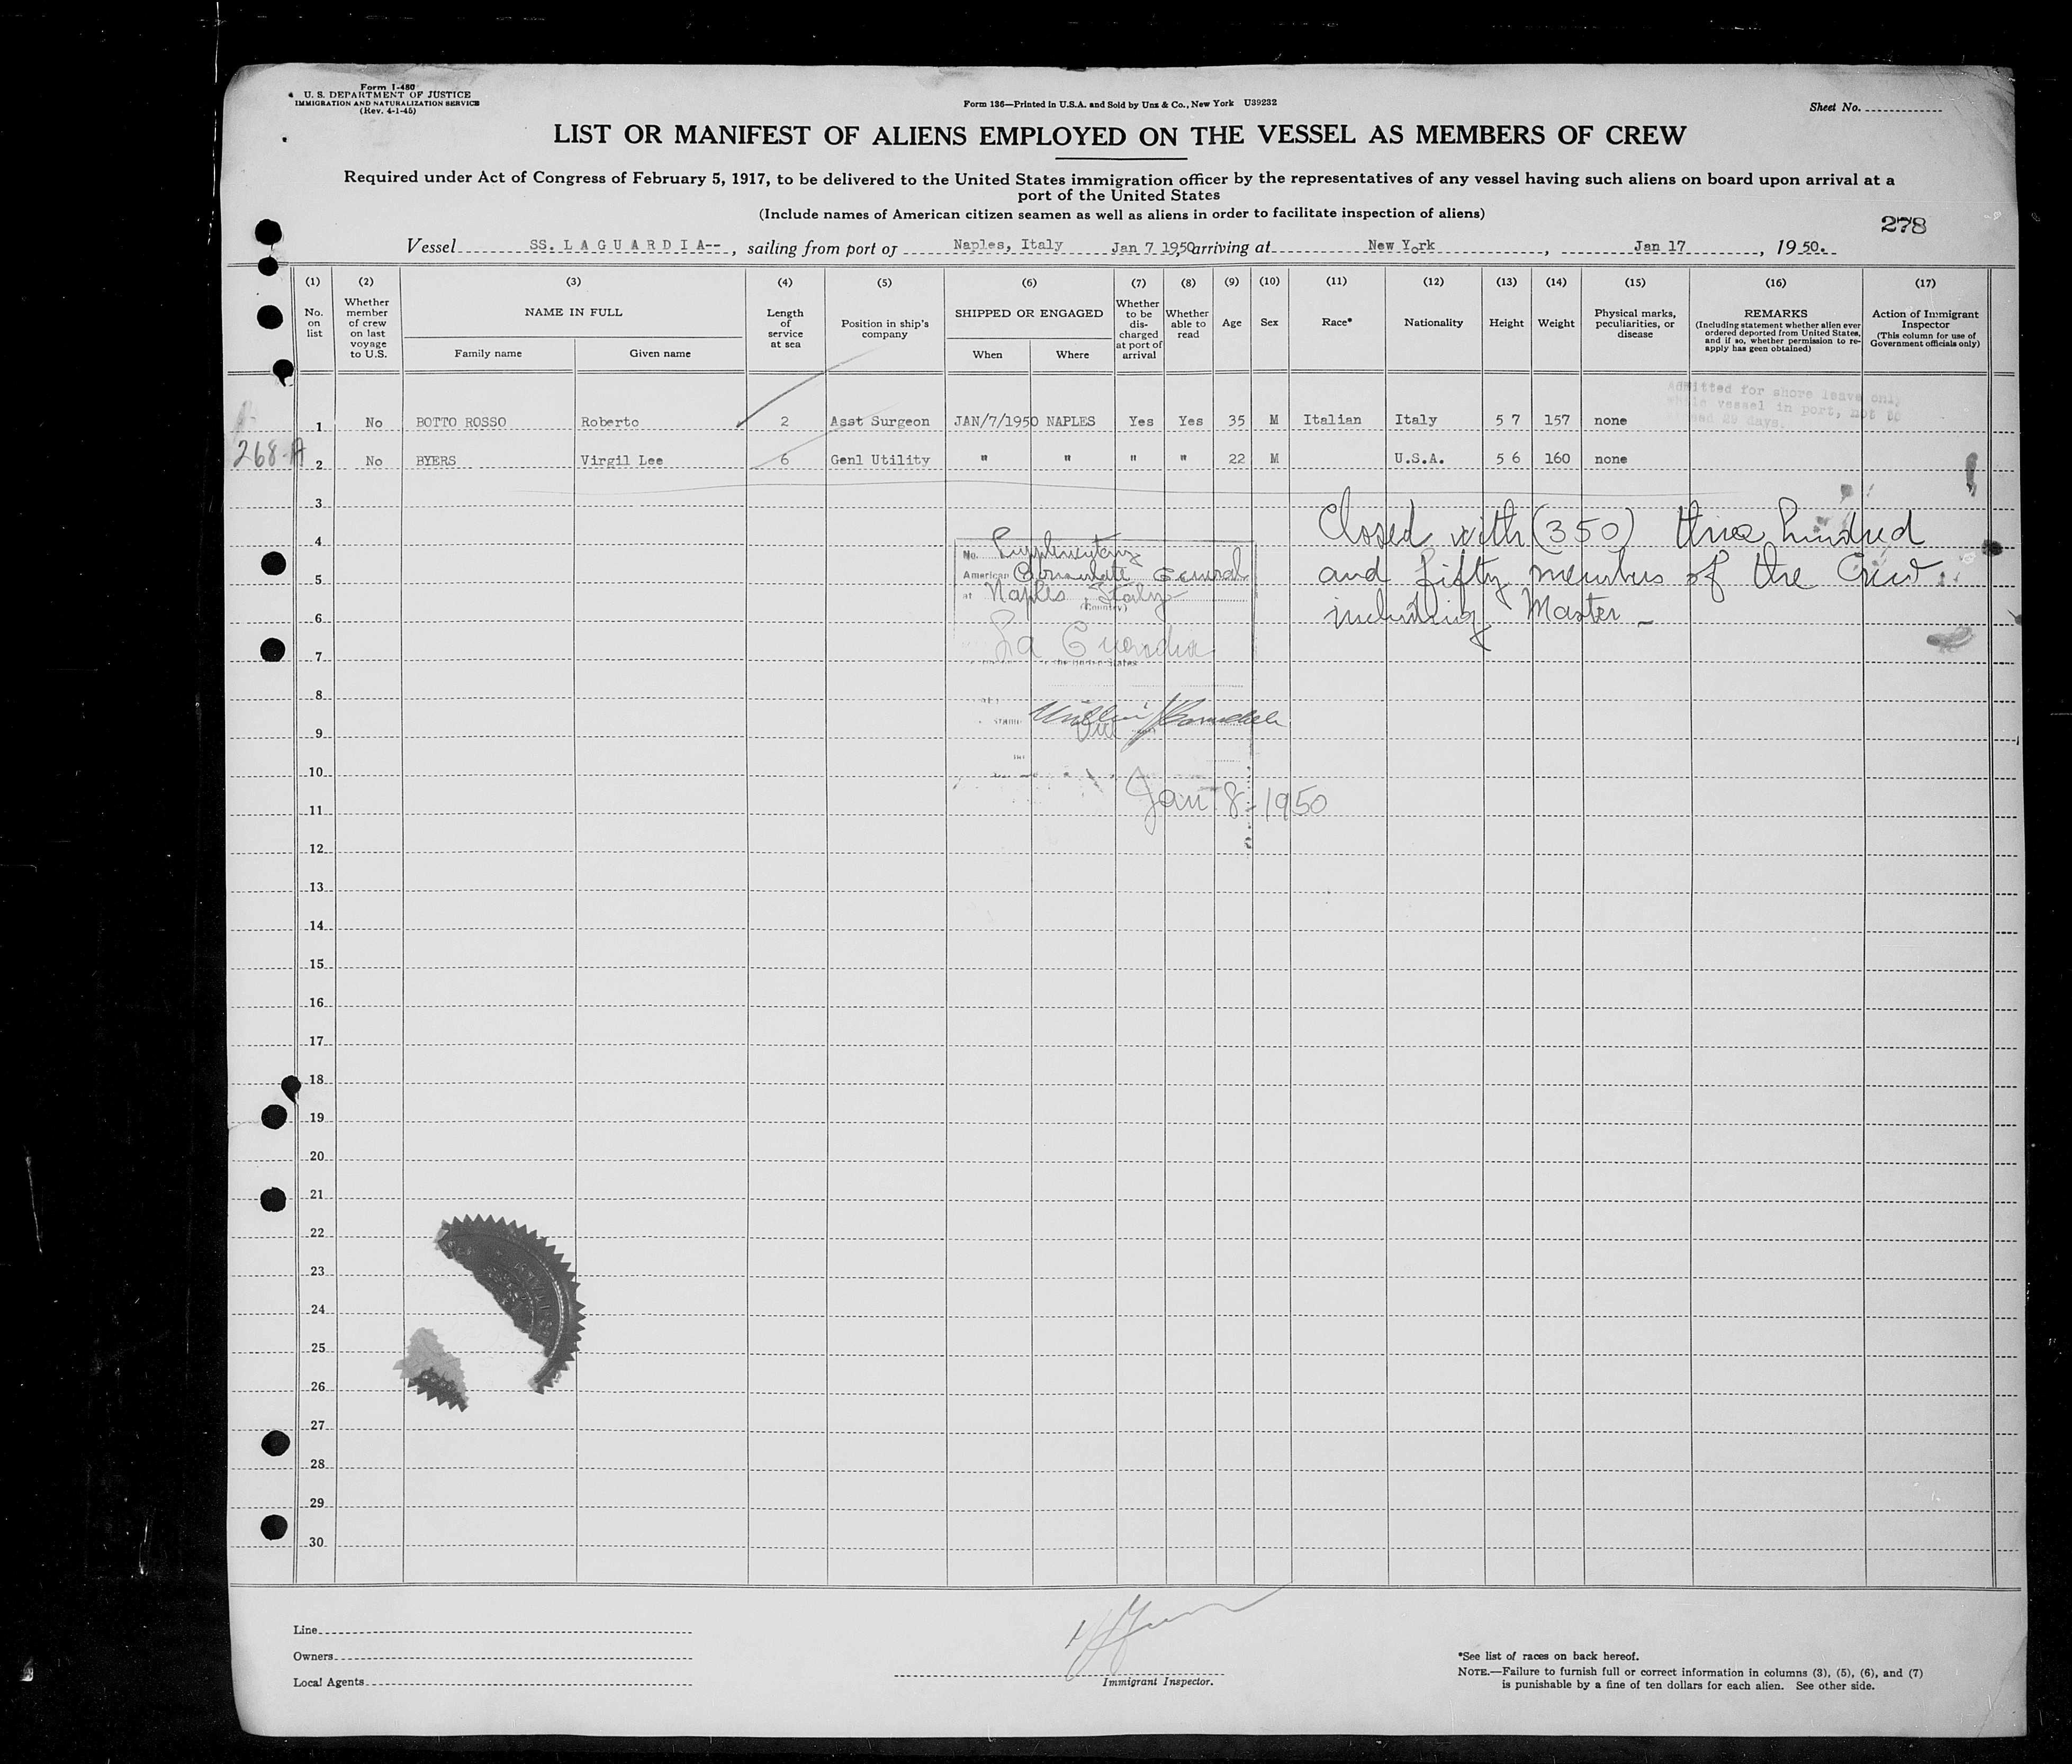 Form I-480
U. S. DEPARTMENT OF JUSTICE
IMMIGRATION AND NATURALIZATION SERVICE
(Rev. 4-1-45)
Form 136—Printed in U.S.A. and Sold by Unz & Co., New York U39232
Sheet No.
LIST OR MANIFEST OF ALIENS EMPLOYED ON THE VESSEL AS MEMBERS OF CREW
Required under Act of Congress of February 5, 1917, to be delivered to the United States immigration officer by the representatives of any vessel having such aliens on board upon arrival at a
port of the United States
(Include names of American citizen seamen as well as aliens in order to facilitate inspection of aliens)
278
Vessel SS. L A G U A R D I A-- , sailing from port of Naples, Italy Jan 7 1950, arriving at New York , Jan 17 , 19 50.
(1) (2) (3) (4) (5) (6) (7) (8) (9) (10) (11) (12) (13) (14) (15) (16) (17)
No. on list
Whether member of crew on last voyage to U.S.
NAME IN FULL
Family name Given name
Length of service at sea
Position in ship's company
SHIPPED OR ENGAGED
When Where
Whether to be discharged at port of arrival
Whether able to read
Age
Sex
Race*
Nationality
Height
Weight
Physical marks, peculiarities, or disease
REMARKS
(Including statement whether alien ever ordered deported from United States, and if so, whether permission to re-apply has geen obtained)
Action of Immigrant Inspector
(This column for use of Government officials only)
Admitted for shore leave only
while vessel in port, not to
exceed 29 days.
1 No BOTTO ROSSO Roberto 2 Asst Surgeon JAN/7/1950 NAPLES Yes Yes 35 M Italian Italy 5 7 157 none
268-A
2 No BYERS Virgil Lee 6 Genl Utility " " " " 22 M U.S.A. 5 6 160 none
3
4
5
6
7
8
9
10
11
12
13
14
15
16
17
18
19
20
21
22
23
24
25
26
27
28
29
30
Closed with (350) three hundred
and fifty members of the Crew
including Master
No. Supplementary
American Consulate General
at Naples, Italy
(Country)
La Guardia
the United States
Jan 8 - 1950
Line
Owners
Local Agents
Immigrant Inspector.
*See list of races on back hereof.
NOTE.—Failure to furnish full or correct information in columns (3), (5), (6), and (7)
is punishable by a fine of ten dollars for each alien. See other side.